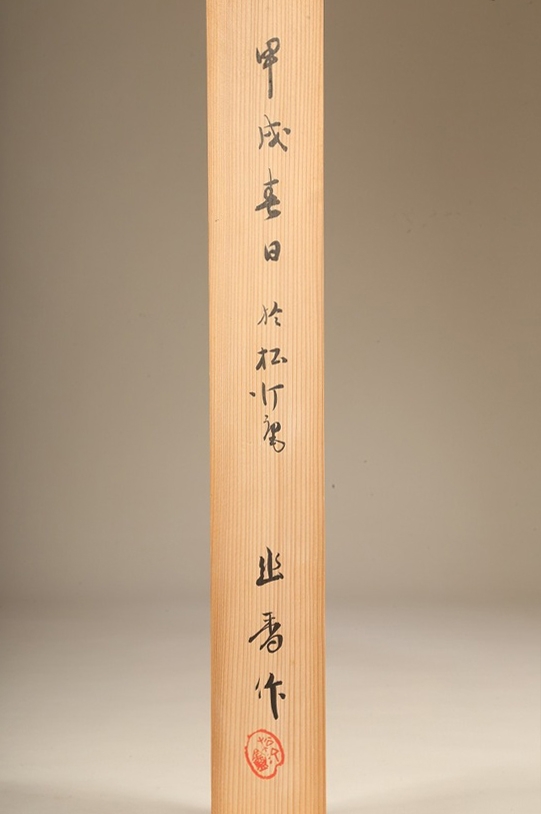 甲戌春日 於松竹庵
幽香作